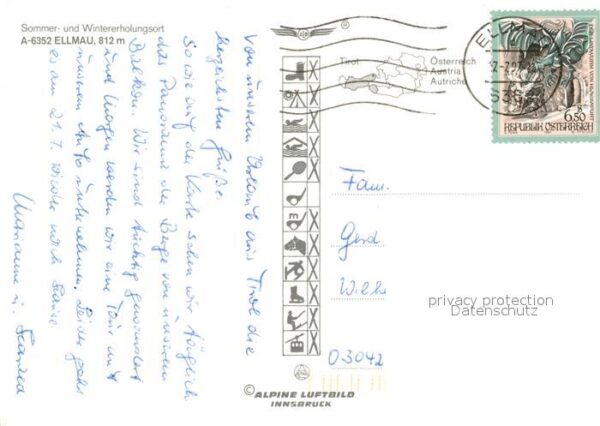 Sommer- und Wintererholungsort
A-6352 ELLMAU, 812 m
Von unserem Urlaub aus Tirol die
herzlichsten Grüße.
So wie auf der Karte sehen wir täglich
das Panorama der Berge von unserem
Balkon. Wir sind tüchtig gewandert
und Morgen werden wir eine Tour mit
unserem Auto unternehmen. Leider geht
es am 21.7. wieder nach Hause
Marianne u.
Tirol
Österreich
Austria
Autriche
6.50
REPUBLIK ÖSTERREICH
Fam.
Gerd
03042
privacy protection
Datenschutz
© ALPINE LUFTBILD
INNSBRUCK